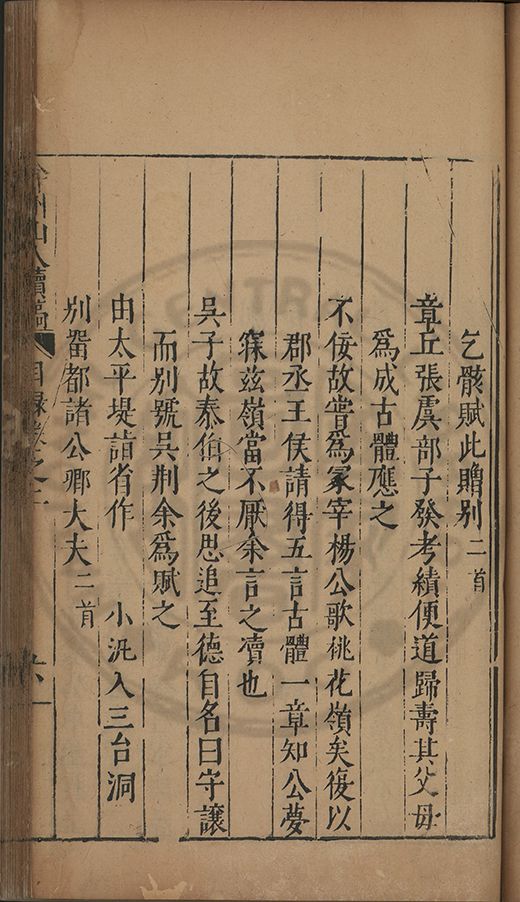 乞骸賦此贈別二首
章丘張虞部子發考績便道歸壽其父母
爲成古體應之
不佞故嘗爲冢宰楊公歌桃花嶺矣復以
郡丞王侯請得五言古體一章知公夢
寐茲嶺當不厭余言之凟也
吳子故泰伯之後思追至德自名曰守讓
而別號吳荆余爲賦之
由太平堤詣省作 小泛入三台洞
別畱都諸公卿大夫二首
州山人續稿 目録卷之